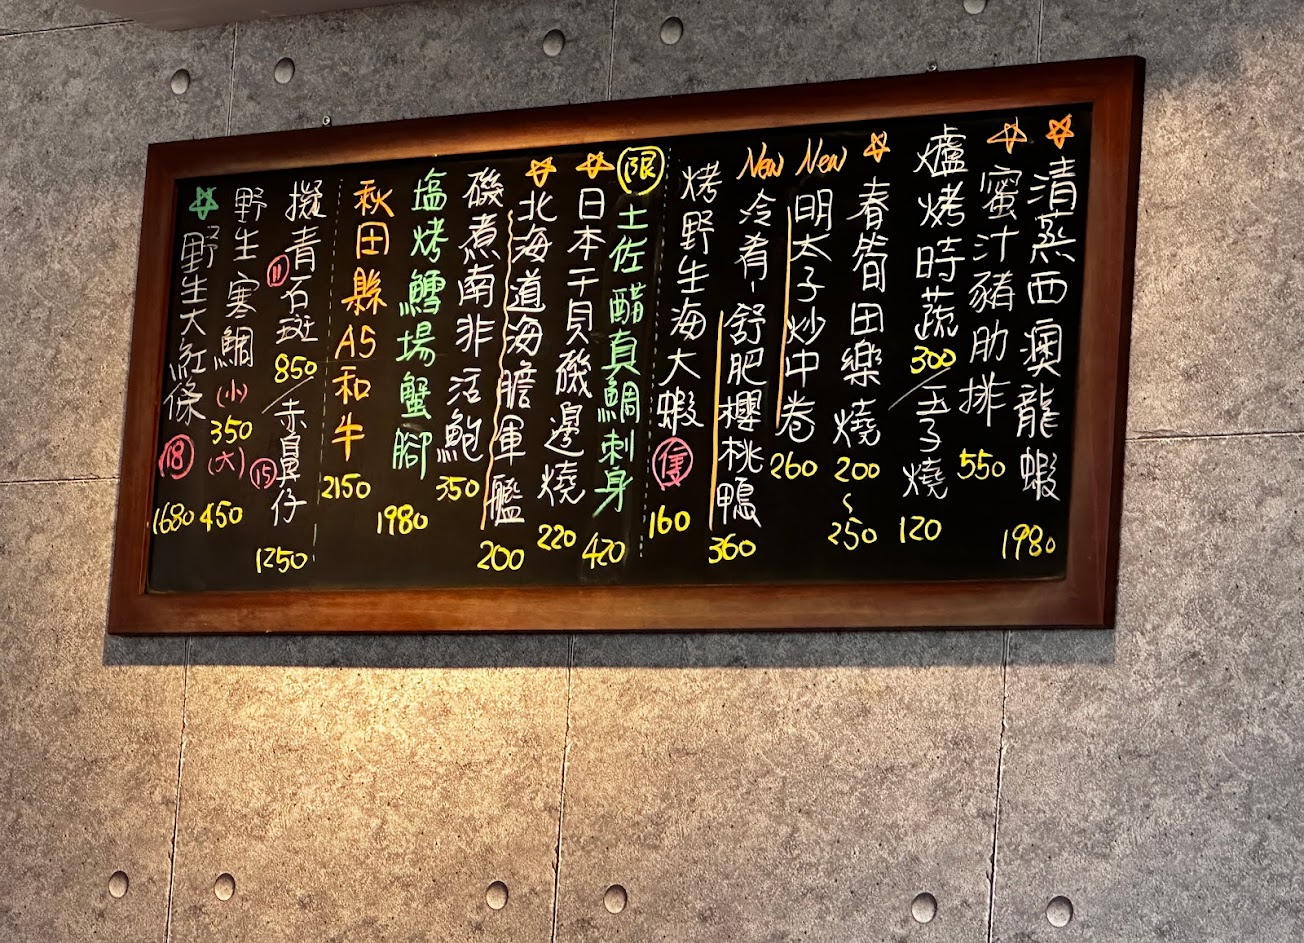 ☆清蒸西澳龍蝦 1980
☆蜜汁豬肋排 550
爐烤時蔬 300/玉子燒 120
☆春筍田樂燒 200~250
New 明太子炒中卷 260
New 冷肴-舒肥櫻桃鴨 360
烤野生海大蝦 (隻) 160
(限) 土佐醋真鯛刺身 420
☆日本干貝磯邊燒 220
☆北海道海膽軍艦 200
磯煮南非活鮑 350
塩烤鱈場蟹腳 1980
秋田縣A5和牛 2150
擬青石斑 (11) 850/赤鼻仔 (15) 1250
野生寒鯛 (小) 350 (大) 450
☆野生大紅條 (18) 1680